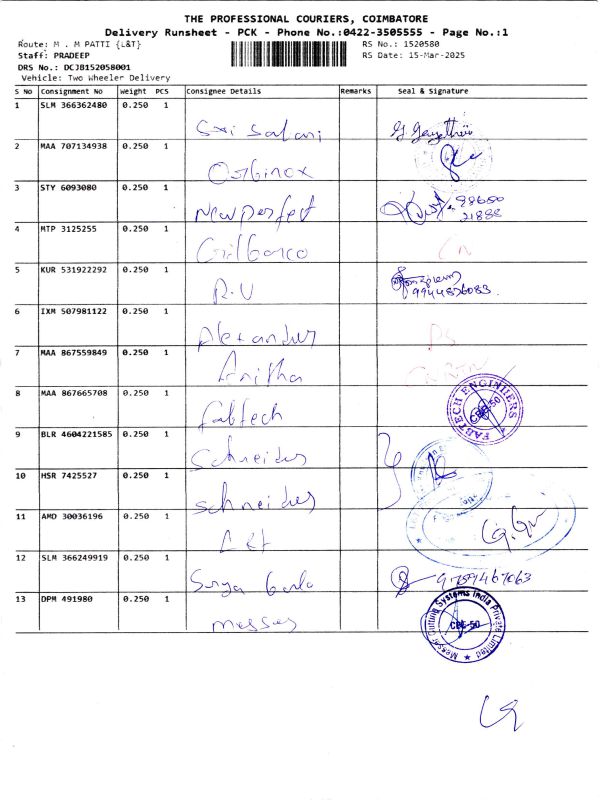 THE PROFESSIONAL COURIERS, COIMBATORE
Delivery Runsheet - PCK - Phone No.:0422-3505555 - Page No.:1
Route: M . M PATTI {L&T}
RS No.: 1520580
Staff: PRADEEP
RS Date: 15-Mar-2025
DRS No.: DCJB152058001
Vehicle: Two Wheeler Delivery
S No Consignment No Weight PCS Consignee Details Remarks Seal & Signature
1 SLM 366362480 0.250 1
Sri Salani
2 MAA 707134938 0.250 1
Orbinox
3 STY 6093080 0.250 1
New perfect 98650
21888
4 MTP 3125255 0.250 1
Gilbarco
5 KUR 531922292 0.250 1
R.U 9944876083
6 IXM 507981122 0.250 1
Alexander
7 MAA 867559849 0.250 1
Anitha
8 MAA 867665708 0.250 1
Fabtech
FABTECH ENGINEERS
CBE-50
9 BLR 4604221585 0.250 1
Schneider
10 HSR 7425527 0.250 1
Schneider
11 AMD 30036196 0.250 1
L&T
12 SLM 366249919 0.250 1
Surya 9789467063
13 DPM 491980 0.250 1
Messer
Messer Cutting Systems India Private Limited
CBE-50